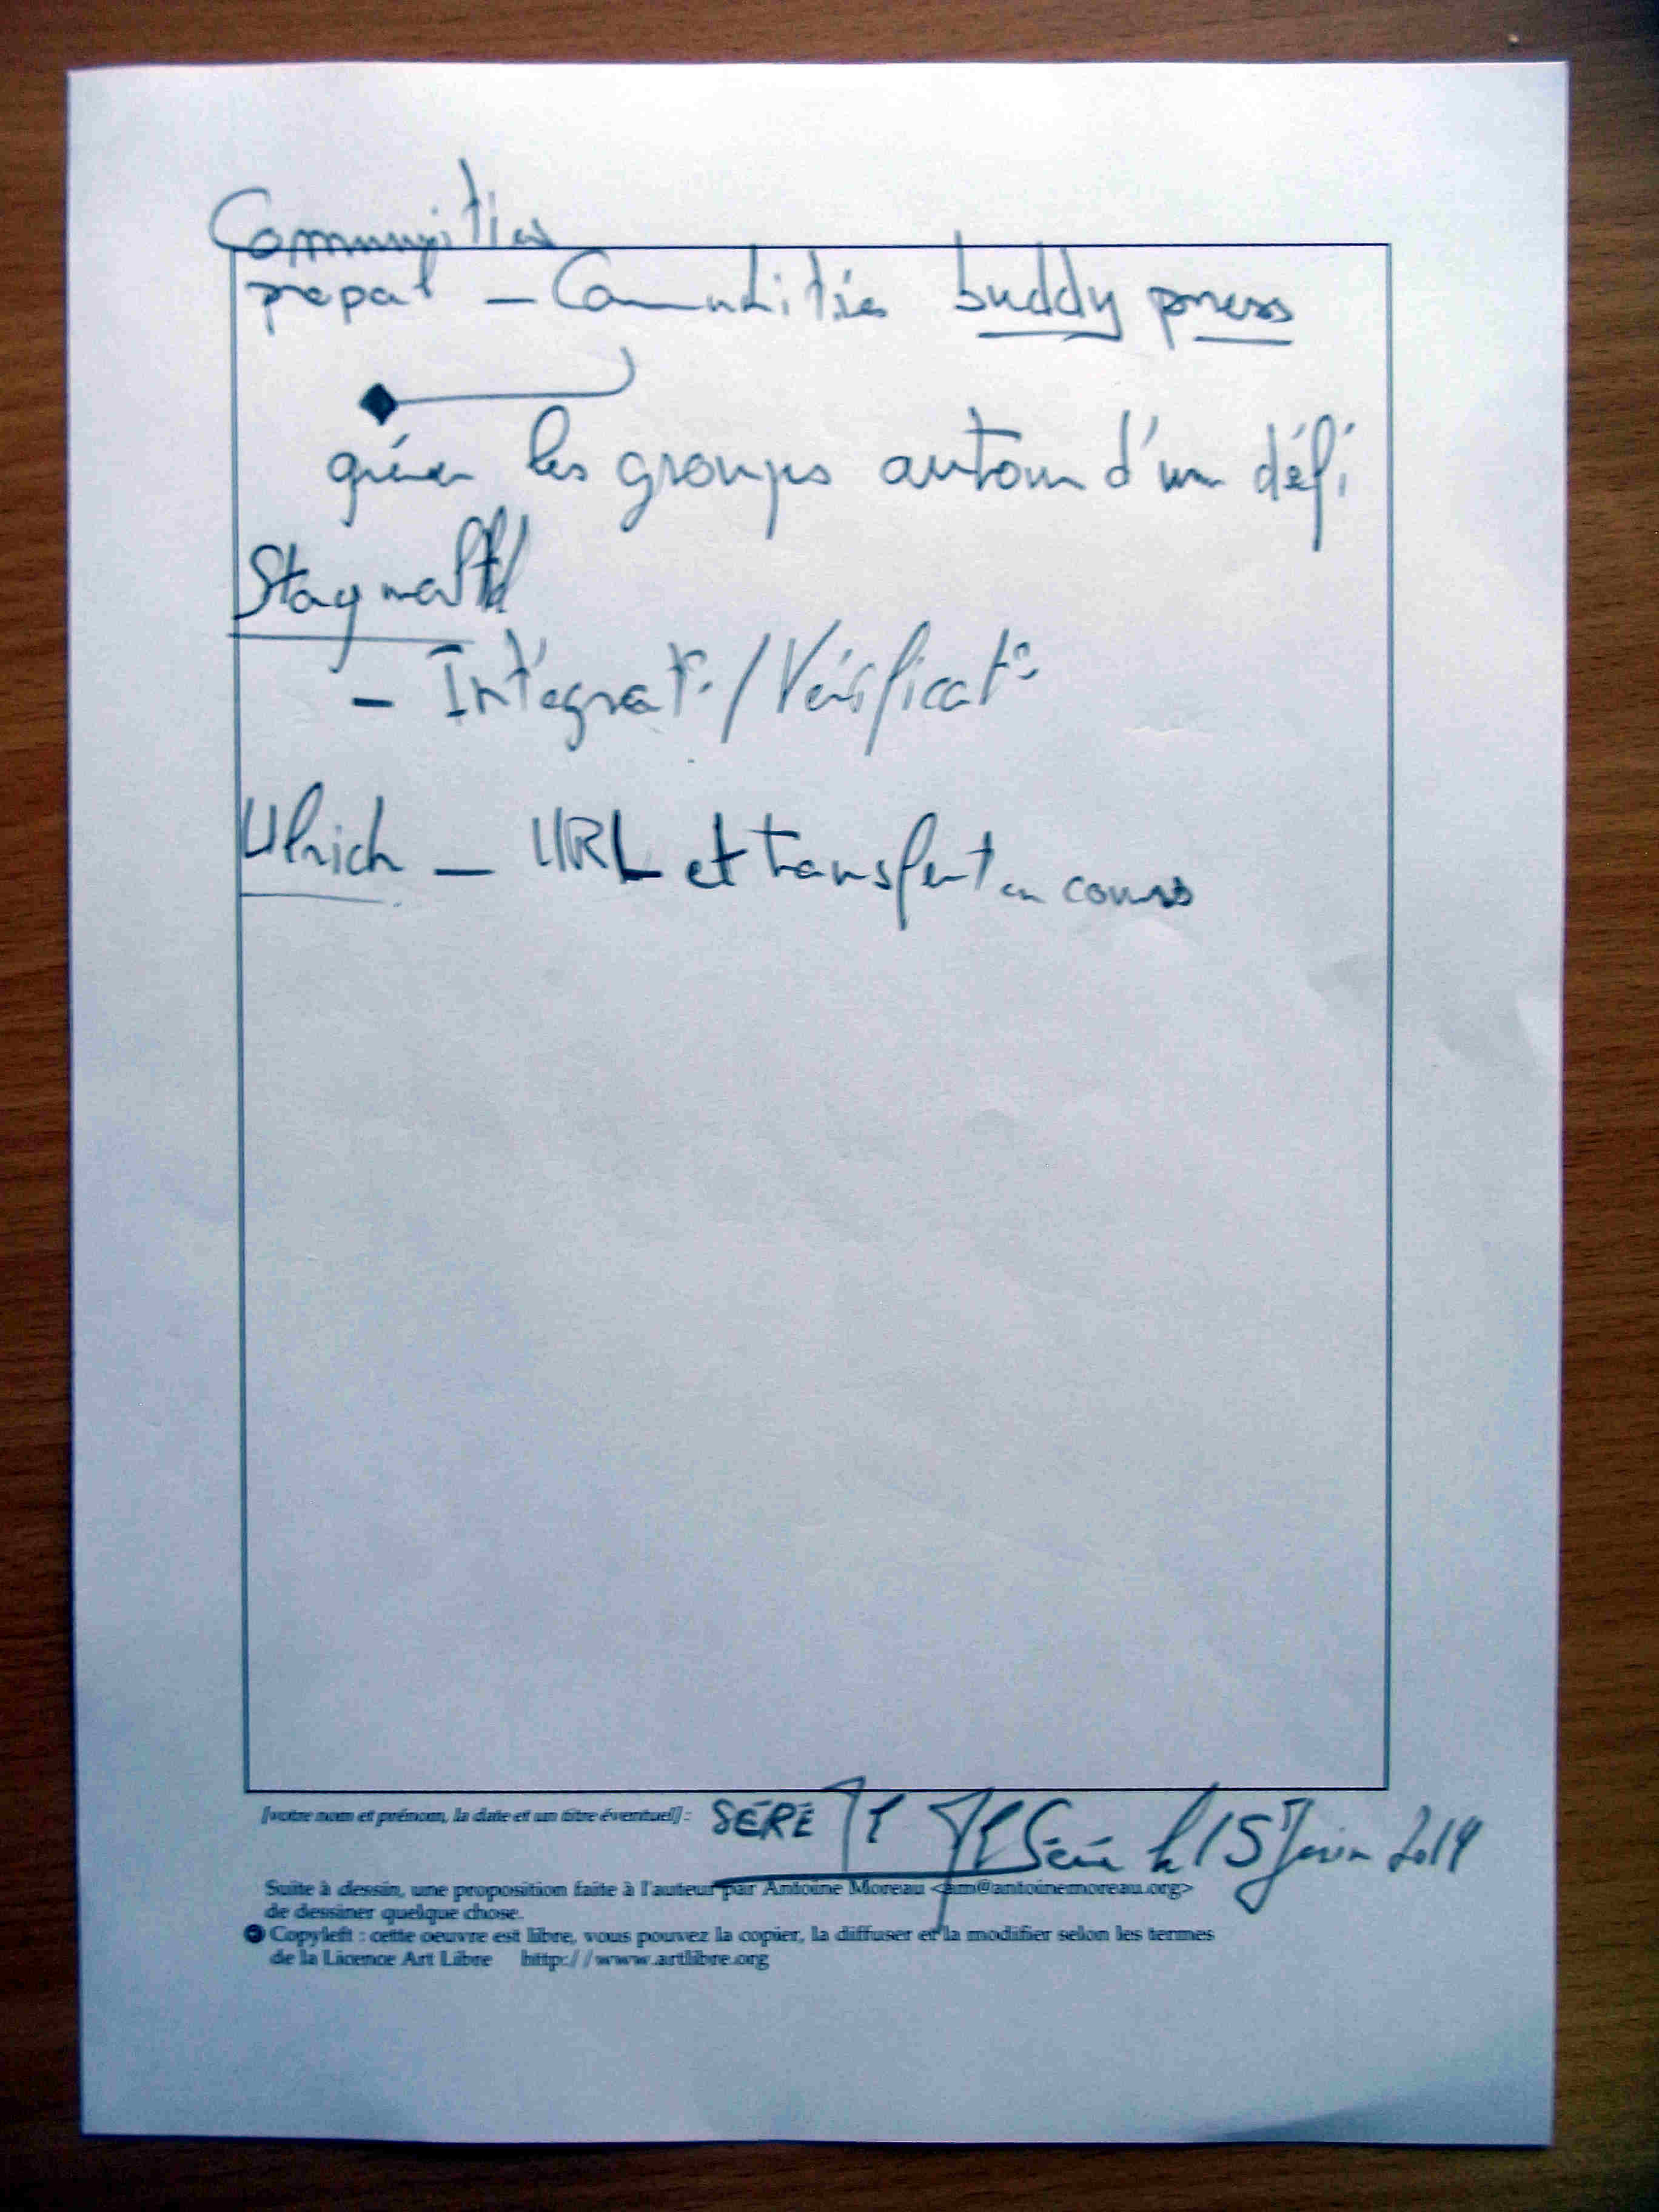 Communities
prepat - Communities buddy press
gérer les groups autour d'un défi
Stag
- Intégrat° / Vérificat°
Ulrich - URL et transfert en cours
[votre nom et prénom, la date et un titre éventuel] : SÉRÉ Séré le 15 2014
Suite à dessin, une proposition faite à l'auteur par Antoine Moreau <am@antoinemoreau.org>
de dessiner quelque chose.
Copyleft : cette oeuvre est libre, vous pouvez la copier, la diffuser et la modifier selon les termes
de la Licence Art Libre http://www.artlibre.org